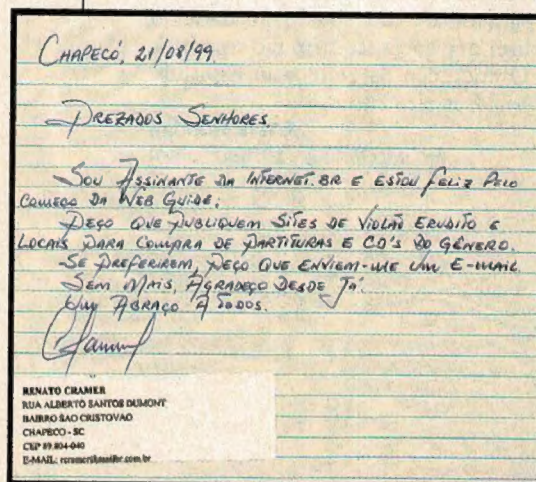 CHAPECÓ, 21/08/99.
PREZADOS SENHORES,
SOU ASSINANTE DA INTERNET.BR E ESTOU FELIZ PELO
COMEÇO DA WEB GUIDE.
PEÇO QUE PUBLIQUEM SITES DE VIOLÃO ERUDITO E
LOCAIS PARA COMPRA DE PARTITURAS E CD'S DO GÊNERO.
SE PREFERIREM, PEÇO QUE ENVIEM-ME UM E-MAIL.
SEM MAIS, AGRADEÇO DESDE JÁ.
UM ABRAÇO A TODOS.
RENATO CRAMER
RUA ALBERTO SANTOS DUMONT
BAIRRO SAO CRISTOVAO
CHAPECO - SC
CEP 89.804-040
E-MAIL: